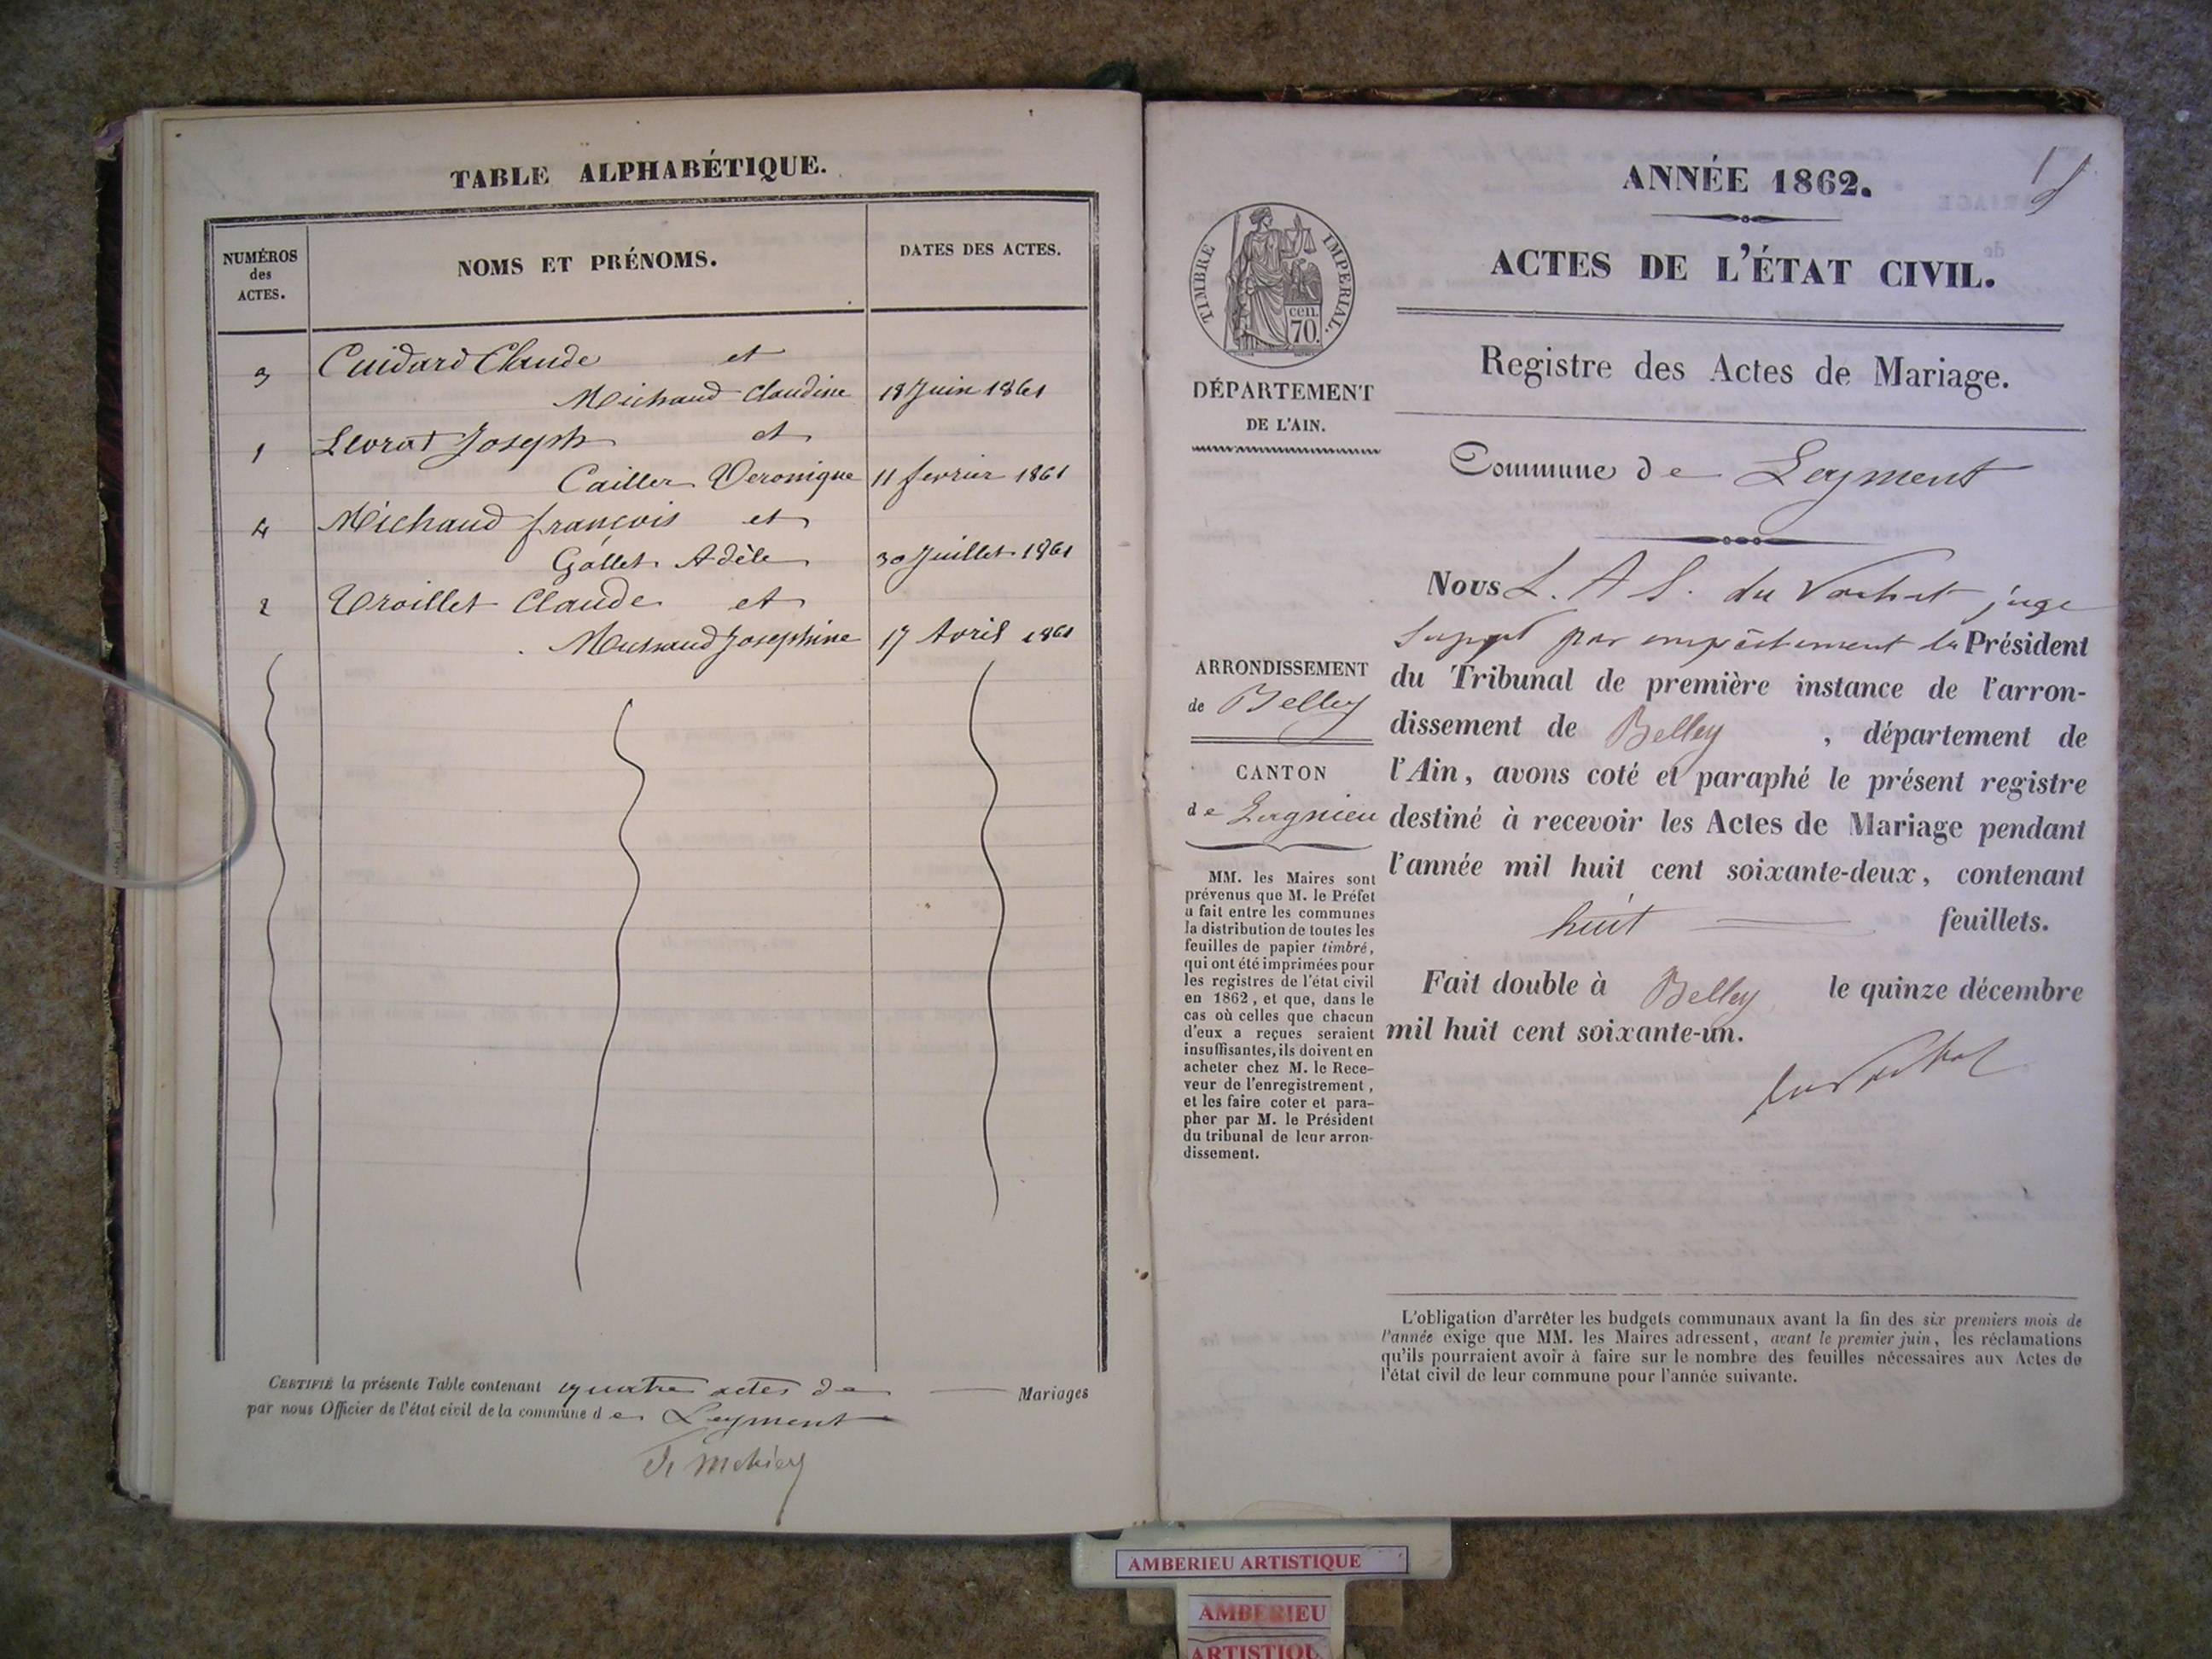 TABLE ALPHABÉTIQUE.
NUMÉROS
des
ACTES.
NOMS ET PRÉNOMS.
DATES DES ACTES.
3 Cuidard Claude et
Michaud Claudine 18 Juin 1861
1 Levrat Joseph et
Cailler Veronique 11 fevrier 1861
4 Michaud françois et
Gallet Adèle 30 Juillet 1861
2 Troillet Claude et
Josephine 17 Avril 1861
CERTIFIÉ la présente Table contenant quatre actes de Mariages
par nous Officier de l'état civil de la commune de Leyment
ANNÉE 1862.
1
ACTES DE L'ÉTAT CIVIL.
TIMBRE IMPERIAL.
cen.
70.
Registre des Actes de Mariage.
DÉPARTEMENT
DE L'AIN.
Commune de Leyment
ARRONDISSEMENT
de Belley
CANTON
de Lagnieu
MM. les Maires sont
prévenus que M. le Préfet
a fait entre les communes
la distribution de toutes les
feuilles de papier timbré,
qui ont été imprimées pour
les registres de l'état civil
en 1862, et que, dans le
cas où celles que chacun
d'eux a reçues seraient
insuffisantes, ils doivent en
acheter chez M. le Rece-
veur de l'enregistrement,
et les faire coter et para-
pher par M. le Président
du tribunal de leur arron-
dissement.
Nous L. A S. du juge
par empêchement du Président
du Tribunal de première instance de l'arron-
dissement de Belley, département de
l'Ain, avons coté et paraphé le présent registre
destiné à recevoir les Actes de Mariage pendant
l'année mil huit cent soixante-deux, contenant
huit feuillets.
Fait double à Belley le quinze décembre
mil huit cent soixante-un.
L'obligation d'arrêter les budgets communaux avant la fin des six premiers mois de
l'année exige que MM. les Maires adressent, avant le premier juin, les réclamations
qu'ils pourraient avoir à faire sur le nombre des feuilles nécessaires aux Actes de
l'état civil de leur commune pour l'année suivante.
AMBERIEU ARTISTIQUE
AMBERIEU
ARTISTIQU